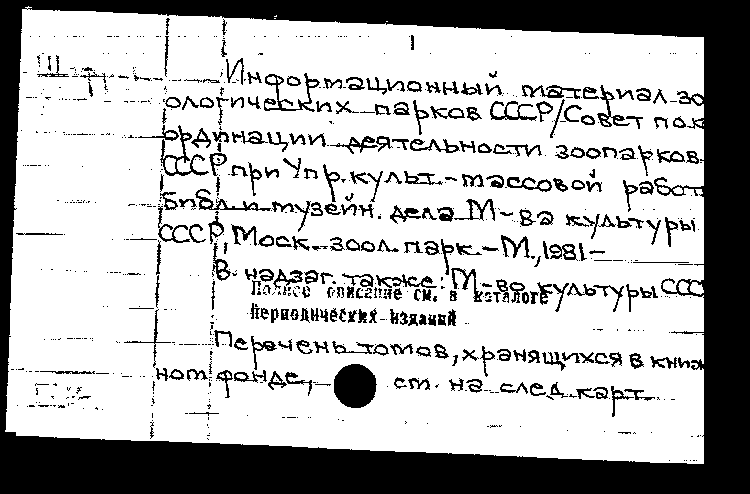 Информационный материал зо
ологических парков СССР/Совет по к
ординации деятельности зоопарков
СССР при Упр. культ.-массовой работ
библ. и музейн. дела М-ва культуры
СССР, Моск. зоол. парк.-М., 1981-
В надзаг. также: М-во культуры ССС
Полное описание см. в каталоге
периодических изданий
Перечень томов, хранящихся в книж
ном фонде, см. на след. карт.